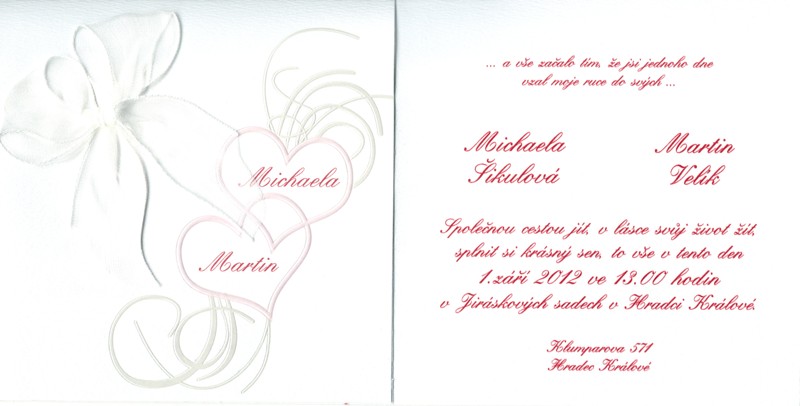 Michaela
Martin
... a vše začalo tím, že jsi jednoho dne
vzal moje ruce do svých ...
Michaela
Šikulová
Martin
Velík
Společnou cestou jít, v lásce svůj život žít,
splnit si krásný sen, to vše v tento den
1.září 2012 ve 13.00 hodin
v Jiráskových sadech v Hradci Králové.
Klumparova 571
Hradec Králové